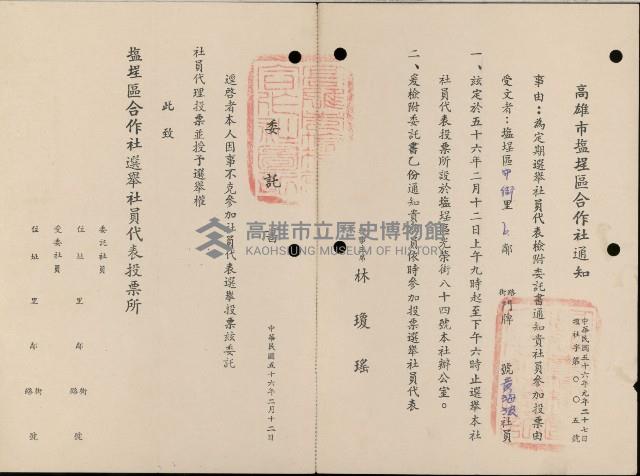 高雄市塩埕區合作社通知
中華民國五十六年元月二十七日
塩社字第〇〇五號
事由：為定期選舉社員代表檢附委託書通知貴社員參加投票由
受文者：塩埕區 里 鄰 路街 門牌 號 社員
一、玆定於五十六年二月十二日上午九時起至下午六時止選舉本社
社員代表投票所設於塩埕區光榮街八十四號本社辦公室。
二、爰檢附委託書乙份通知貴社員依時參加投票選舉社員代表
林瓊瑤
委託書
逕啓者本人因事不克參加社員代表選舉投票玆委託
社員代理投票並授予選舉權
此致
塩埕區合作社選舉社員代表投票所
委託社員
住址 里 鄰 街路 號
受委社員
住址 里 鄰 街路 號
中華民國五十六年二月十二日
高雄市立歷史博物館
KAOHSIUNG MUSEUM OF HISTORY